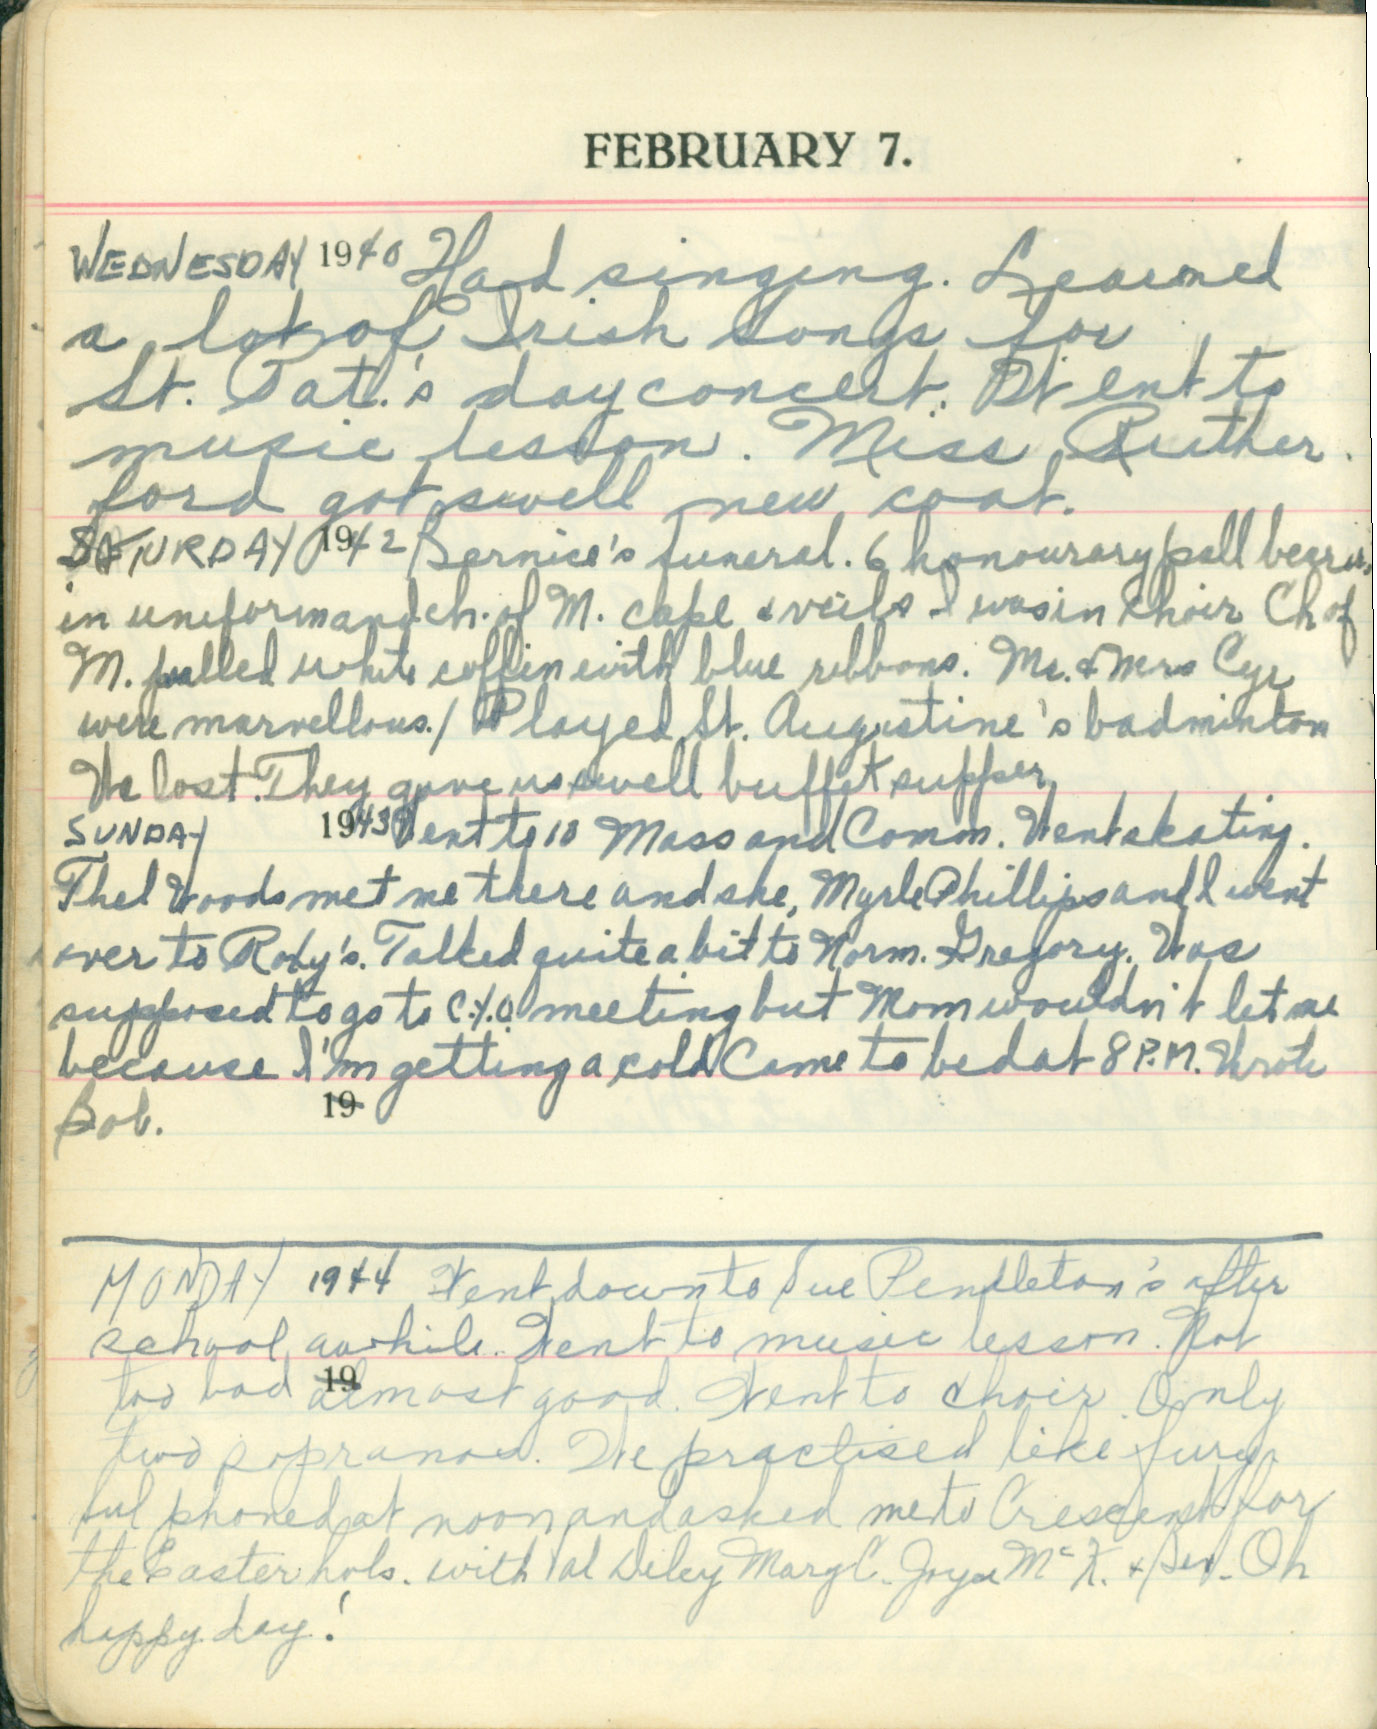 FEBRUARY 7.
WEDNESDAY 1940 Had singing. Learned
a lot of Irish songs for
St. Pat.'s day concert. Went to
music lesson. Miss Ruther
ford got swell new coat.
SATURDAY 1942 Bernice's funeral. 6 honourary pall bearers
in uniform and ch. of M. cape & veils I was in choir Ch of
M. pulled white coffin with blue ribbons. Mr. & Mrs Cyr
were marvellous. / Played St. Augustine's badminton
We lost. They gave us swell buffet supper.
SUNDAY 1943 Went to 10 Mass and Comm. Went skating.
Thel Woods met me there and she, Myrle Phillips and I went
over to Roby's. Talked quite a bit to Norm. Gregory. Was
supposed to go to C.Y.O. meeting but Mom wouldn't let me
because I'm getting a cold Came to bed at 8 P.M. Wrote
Bob. 19
MONDAY 1944 Went down to Sue Pendleton's after
school awhile. Went to music lesson. Not
too bad 19 almost good. Went to choir. Only
two sopranos. We practised like fury.
phoned at noon and asked me to Crescent for
the Easter hols. with Mary C. Joyce McK. & Bev. Oh
happy day!